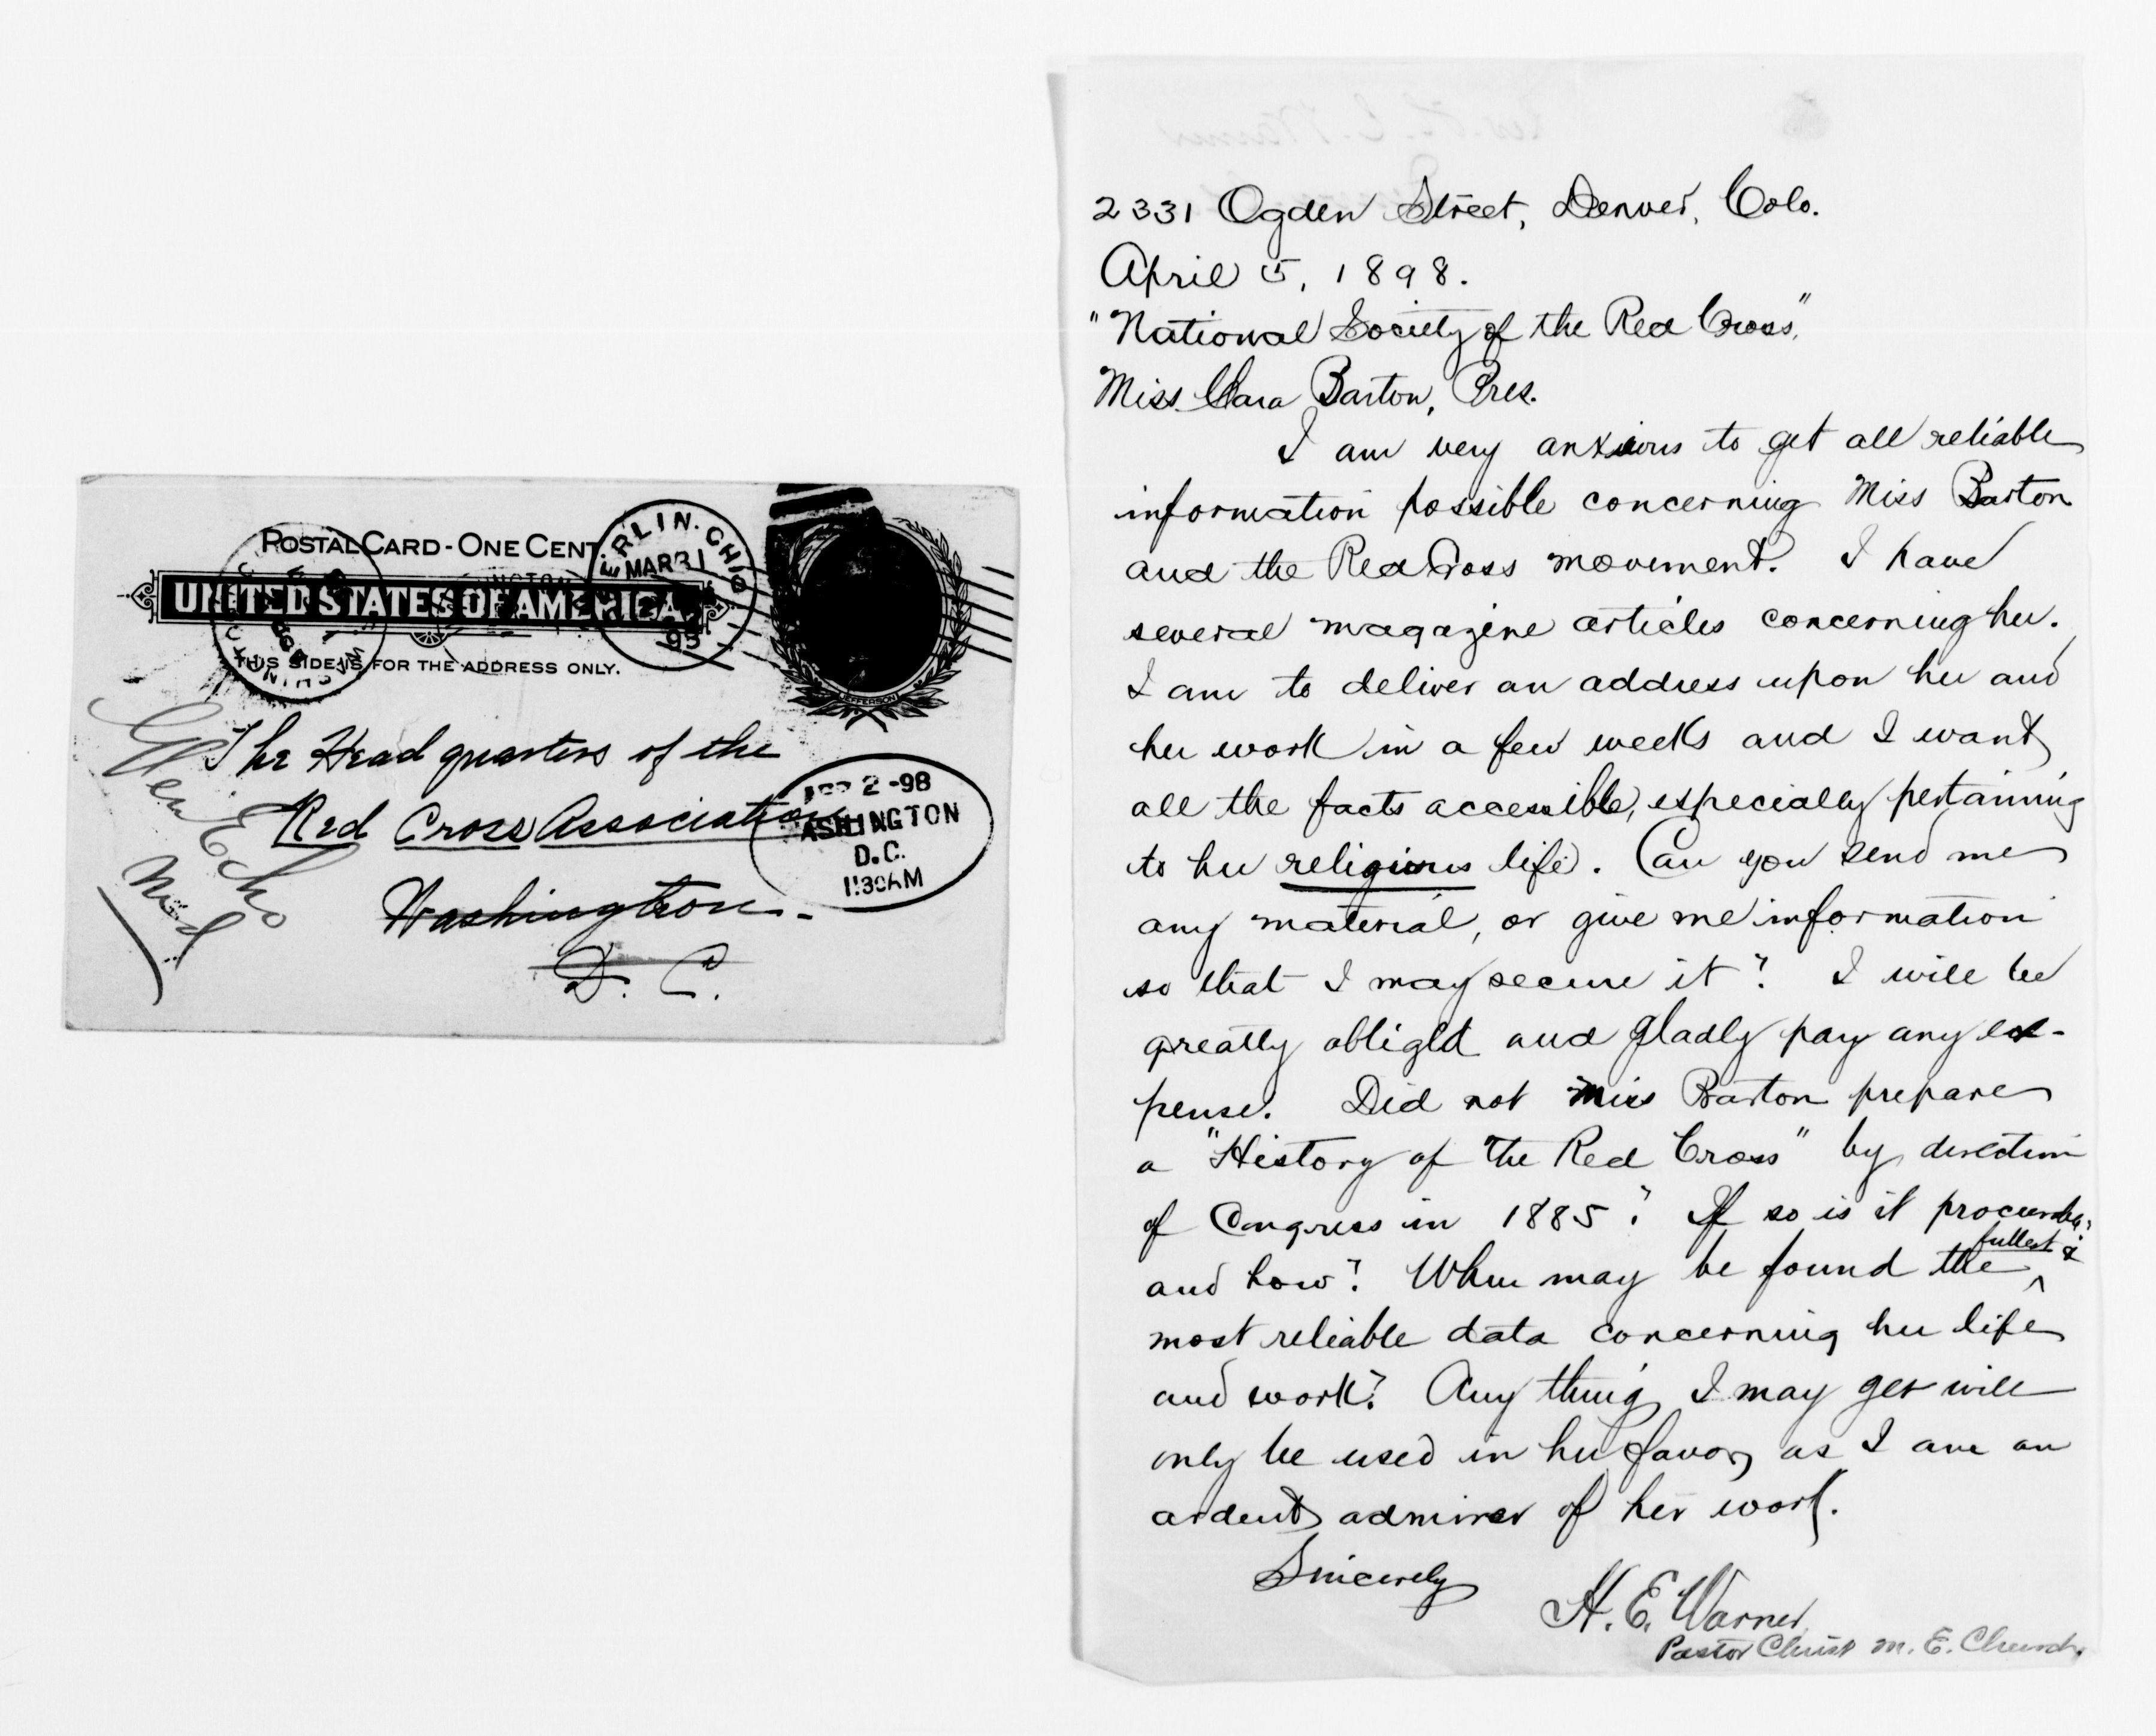 POSTAL CARD - ONE CENT.
UNITED STATES OF AMERICA
THIS SIDE IS FOR THE ADDRESS ONLY.
MAR 31
JEFFERSON
The Head quarters of the
Red Cross Association
Washington
D. C.
Glen Echo
Md
2 -98
ASHINGTON
D.C.
AM
2331 Ogden Street, Denver, Colo.
April 5, 1898.
"National Society of the Red Cross,"
Miss Clara Barton, Pres.
I am very anxious to get all reliable
information possible concerning Miss Barton
and the Red Cross movement. I have
several magazine articles concerning her.
I am to deliver an address upon her and
her work in a few weeks and I want
all the facts accessible, especially pertaining
to her religious life. Can you send me
any material, or give me information
so that I may secure it? I will be
greatly obliged and gladly pay any ex-
pense. Did not Miss Barton prepare
a "History of the Red Cross" by direction
of Congress in 1885? If so is it
and how? Where may be found the fullest &
most reliable data concerning her life
and work? Any thing I may get will
only be used in her favor, as I am an
ardent admirer of her work.
Sincerely
H. E. Warner,
Pastor Christ M. E. Church.